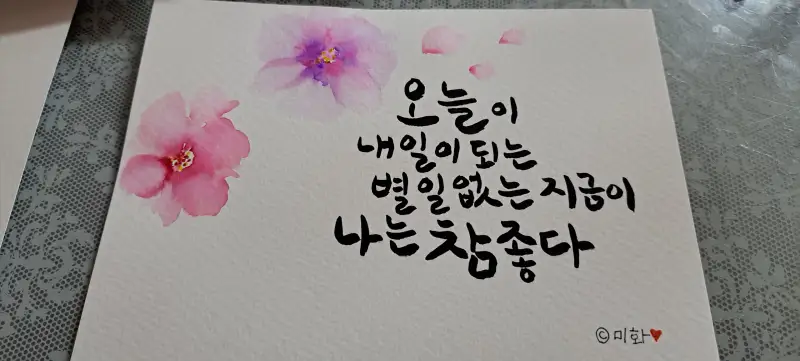 오늘이
내일이 되는
별일 없는 지금이
나는 참 좋다
©미화♥